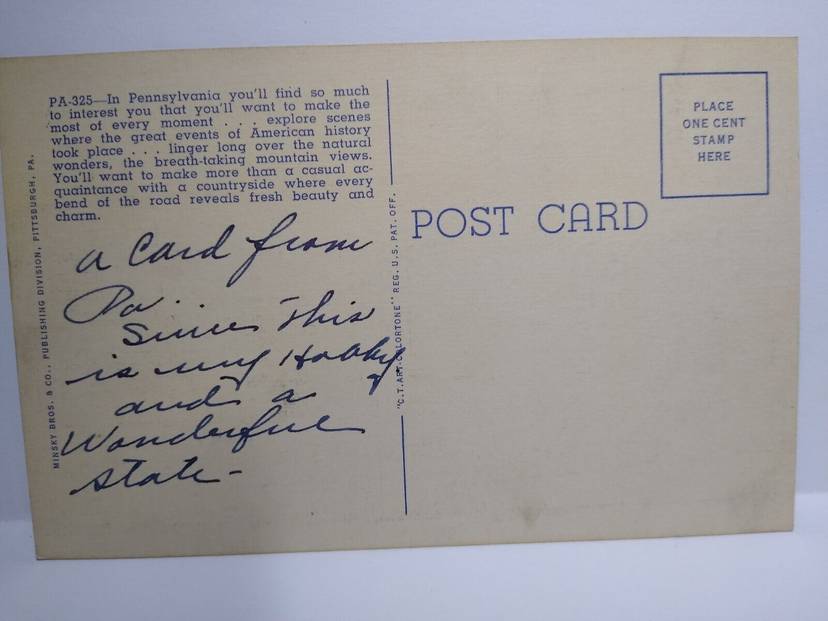 PA-325—In Pennsylvania you'll find so much
to interest you that you'll want to make the
most of every moment . . . explore scenes
where the great events of American history
took place . . . linger long over the natural
wonders, the breath-taking mountain views.
You'll want to make more than a casual ac-
quaintance with a countryside where every
bend of the road reveals fresh beauty and
charm.
a Card from
Pa.
Since This
is my Hobby
and a
Wonderful
state-
MINSKY BROS. & CO., PUBLISHING DIVISION, PITTSBURGH, PA.
"C.T.ART-COLORTONE" REG. U.S. PAT. OFF.
POST CARD
PLACE
ONE CENT
STAMP
HERE